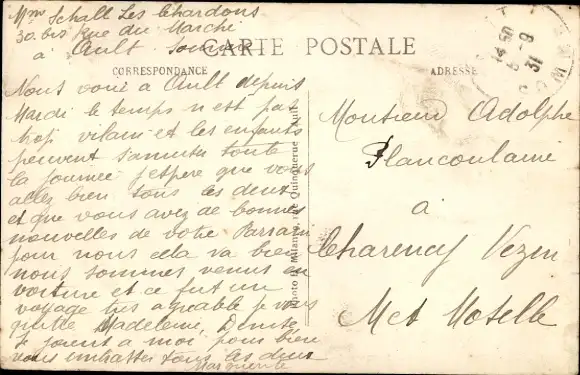 Mme Schall Les Chardons
30 bis Rue du Marché
à Ault Somme
CARTE POSTALE
CORRESPONDANCE
ADRESSE
14 50
5 - 9
31
Nous voici à Ault depuis
Mardi le temps n est pas
trop vilain et les enfants
peuvent s'amuser toute
la journée j'espère que vous
allez bien tous les deux
et que vous avez de bonnes
nouvelles de votre Parrain
pour nous cela va bien
nous sommes venus en
voiture et ce fut un
voyage très agréable je vous
quitte Madeleine, Denise
se joient a moi pour bien
vous embrasser tous les deux
Marguerite
Photo Milance, rue Quinquerue Ault
Monsieur Adolphe
Plancoulaine
à
Charency Vezin
Met Moselle